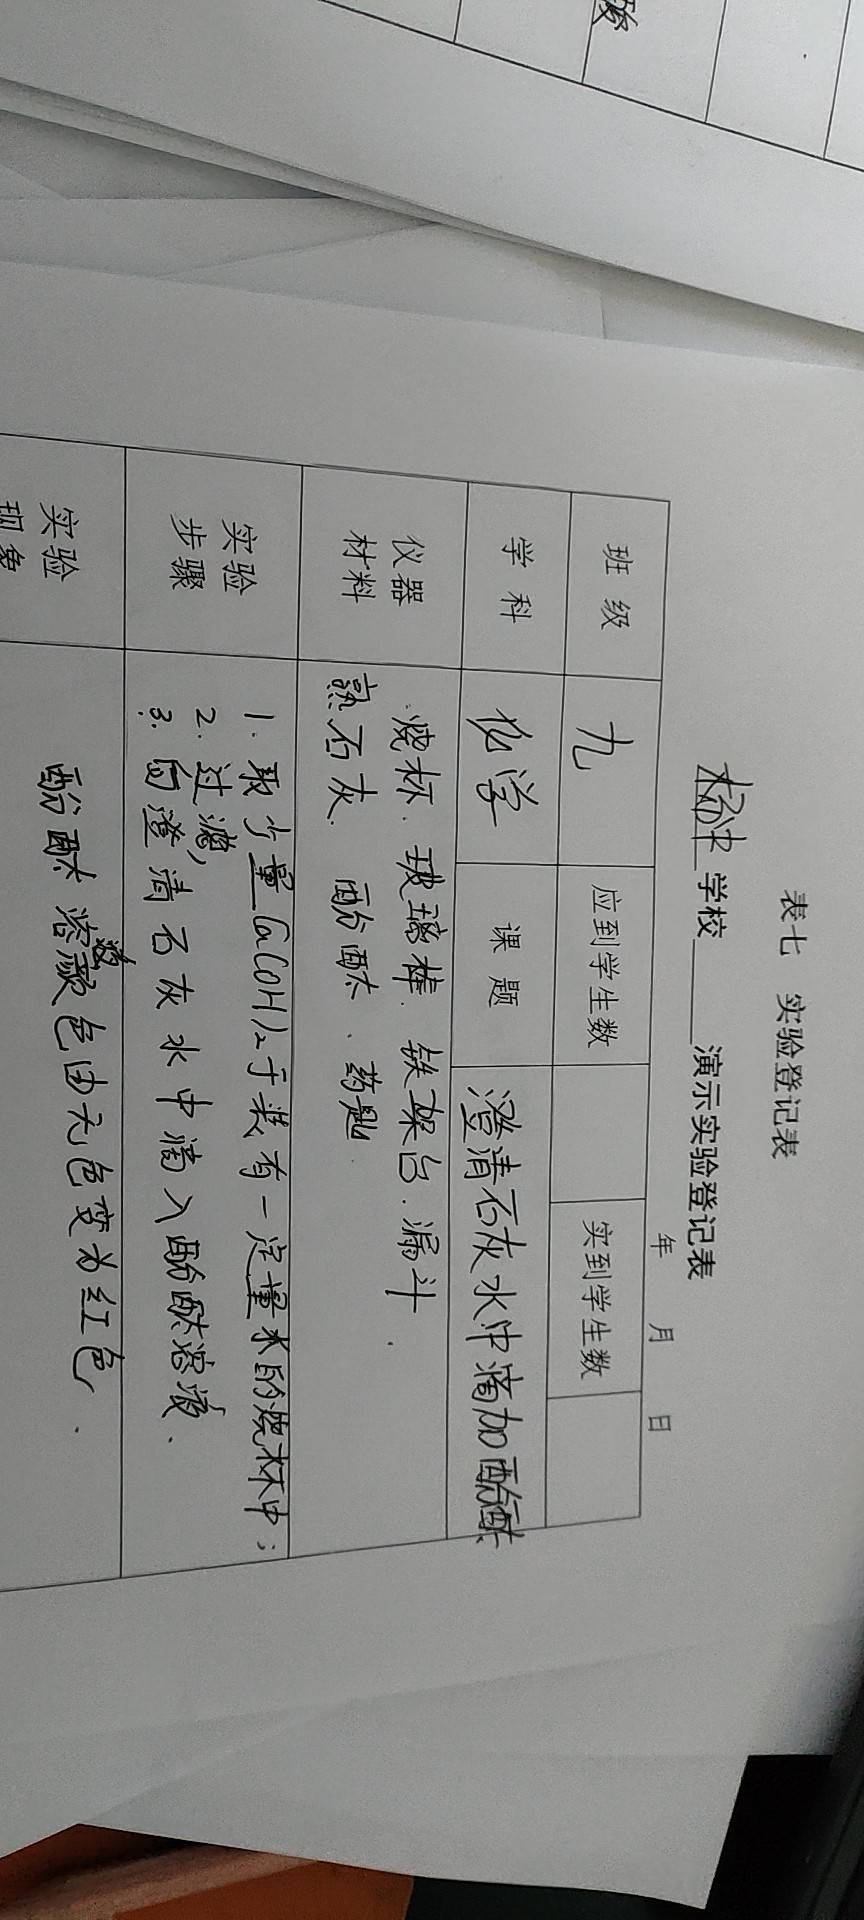 表七 实验登记表
杨中学校______演示实验登记表
年 月 日
班级 九 应到学生数 实到学生数
学科 化学 课题 澄清石灰水中滴加酚酞
仪器材料 烧杯、玻璃棒、铁架台、漏斗、
熟石灰、酚酞、药匙
实验步骤 1. 取少量Ca(OH)₂于装有一定量水的烧杯中;
2. 过滤,
3. 向澄清石灰水中滴入酚酞溶液、
实验现象 酚酞溶液颜色由无色变为红色、